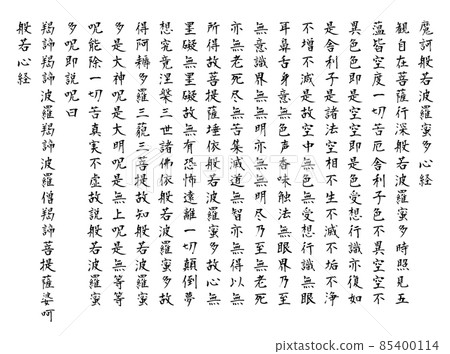 魔訶般若波羅蜜多心経
観自在菩薩行深般若波羅蜜多時照見五
蘊皆空度一切苦厄舎利子色不異空空不
異色色即是空空即是色受想行識亦復如
是舎利子是諸法空相不生不滅不垢不浄
不増不減是故空中無色無受想行識無眼
耳鼻舌身意無色声香味触法無眼界乃至
無意識界無無明亦無無明尽乃至無老死
亦無老死尽無苦集滅道無智亦無得以無
所得故菩提薩埵依般若波羅蜜多故心無
罣礙無罣礙故無有恐怖遠離一切顛倒夢
想究竟涅槃三世諸佛依般若波羅蜜多故
得阿耨多羅三藐三菩提故知般若波羅蜜
多是大神呪是大明呪是無上呪是無等等
呪能除一切苦真実不虚故説般若波羅蜜
多呪即説呪曰
羯諦羯諦波羅羯諦波羅僧羯諦菩提薩婆呵
般若心経
85400114